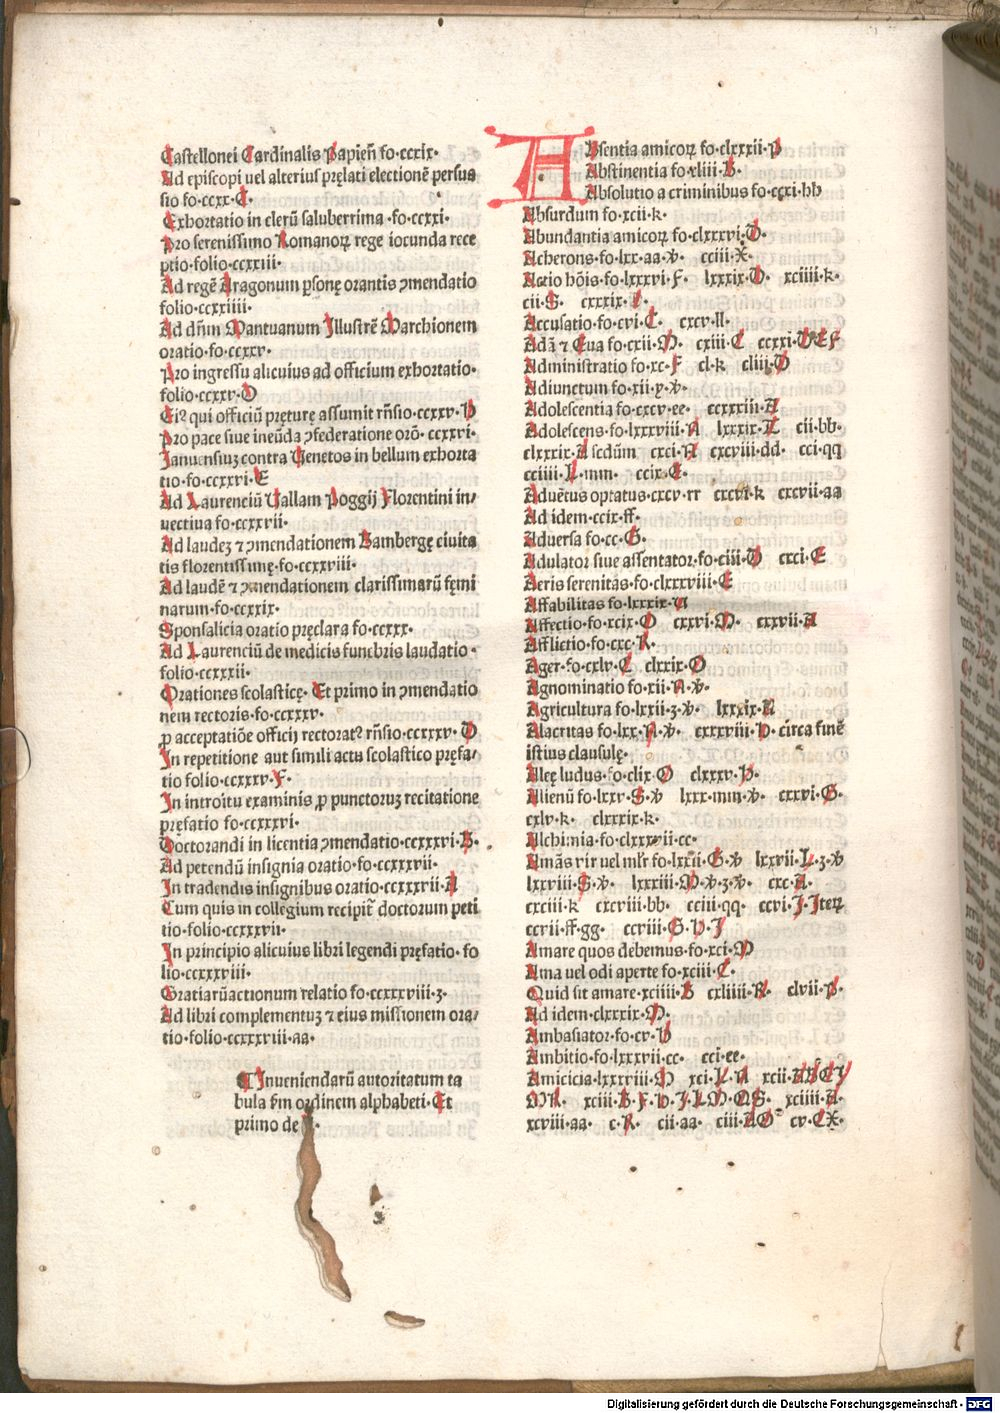 Castellonei Cardinalis Papien̄ fo·ccxix·
Ad episcopi uel alterius pręlati electionē persua
sio fo·ccxx·C·
Exhortatio in clerū saluberrima ·fo·ccxxi·
Pro serenissimo Romanoꝝ rege iocunda rece
ptio·folio·ccxxiii·
Ad regē Aragonum ꝑsonę orantis ꝯmendatio
folio·ccxxiiii·
Ad dn̄m Mantuanum Illustrē Marchionem
oratio·fo·ccxxv·
Pro ingressu alicuius ad officium exhortatio·
folio·ccxxv·O
Eiꝰ qui officiū pręturę assumit rn̄sio·ccxxv·
Pro pace siue ineūda ꝯfederatione orō· ccxxvi·
Januensiuꝫ contra Venetos in bellum exhorta
tio·fo·ccxxvi·E
Ad Laurenciū Uallam Poggij Florentini in/
uectiua fo·ccxxvii·
Ad laudeꝫ ⁊ ꝯmendationem Bambergę ciuita
tis florentissimę·fo·ccxxviii·
Ad laudē ⁊ ꝯmendationem clarissimarū fęmi
narum·fo·ccxxix·
Sponsalicia oratio pręclara fo·ccxxx·
Ad Laurenciū de medicis funebris laudatio·
folio·ccxxxii·
Orationes scolasticę· Et primo in ꝯmendatio
nem rectoris·fo·ccxxxv·
ꝓ acceptatiōe officij rectoratꝰ rn̄sio·ccxxxv·
In repetitione aut simili actu scolastico pręfa/
tio folio·ccxxxv·F·
In introitu examinis ꝓ punctoruꝫ recitatione
pręfatio fo·ccxxxvi·
Doctorandi in licentia ꝯmendatio·ccxxxvi·B·
Ad petendū insignia oratio·fo·ccxxxvii·
In tradendis insignibus oratio·ccxxxvii·A
Cum quis in collegium recipit̄ doctorum peti
tio·folio·ccxxxvii·
In principio alicuius libri legendi pręfatio· fo
lio·ccxxxviii·
Gratiarūactionum relatio fo·ccxxxviii·ꝫ·
Ad libri complementuꝫ ⁊ eius missionem ora/
tio·folio·ccxxxviii·aa·
Inueniendarū autoritatum ta
bula ẜm ordinem alphabeti· Et
primo de
ABsentia amicoꝝ fo·clxxxii·P
Abstinentia fo·xliii·B·
Absolutio a criminibus fo·ccxi·hh
Absurdum fo·xcii·k·
Abundantia amicoꝝ fo·clxxxvi·
Acherons·fo·lxx·aa· cciii·X·
Actio hōis·fo·lxxxvi·F· lxxxix· xciiii·k·
cii·S· cxxxix·
Accusatio·fo·cvi·C· cxcv·ll·
Adā ⁊ Eua fo·cxii·M· cxiii·C ccxxi·DEF
Administratio fo·xc·F cl·k cliii·
Adiunctum fo·xii·y·
Adolescentia fo·cxcv·ee· ccxxxiii·A
Adolescens·fo·lxxxviii·N lxxxix·L cii·bb·
clxxxix·A scdūm cxci·N cxcviii·dd· cci·qq
cciiii·L·mm· ccix·C·
Aduētus optatus·cxcv·rr cxcvi·k cxcvii·aa
Ad idem·ccix·ff·
Aduersa fo·cc·G·
Adulator siue assentator·fo·ciii· cxci·E
Aeris serenitas·fo·clxxxviii·E
Affabilitas fo·lxxxix·
Affectio·fo·xcix·O cxxvi·M· cxxvii·A
Afflictio·fo·cxc·R·
Ager·fo·cxlv·C clxxix·O
Agnominatio fo·xii·N·
Agricultura fo·lxxii·ꝫ· lxxxix·N
Alacritas fo·lxx·N· cxxxviii· circa finē
istius clausulę·
Aleę ludus·fo·clix·O clxxxv·
Alienū fo·lxxv·S· lxxx·mm· cxxxvi·G·
cxlv·k· clxxxix·k·
Alchimia·fo·clxxxvii·cc·
Amās vir uel mlr̄ fo·lxxii·G· lxxvii·L·ꝫ·
lxxviii·S· lxxxiii·M·ꝫ· cxc·A·
cxciii·k cxcviii·bb· cciii·qq· ccvi·I·Iteꝝ
ccvii·ff·gg· ccviii·G·
Amare quos debemus·fo·xci·M
Ama uel odi aperte fo·xciii·C·
Quid sit amare·xciiii·B cxliiii·R· clvii·P·
Ad idem·clxxxix·M·
Ambasiator·fo·cv·
Ambitio·fo·lxxxvii·cc· cci·ee·
Amicicia·lxxxviii·M xci·L·N xcii·ABCI
MR· xciii·B·F· xciiii·A·
xcviii·aa· c·R· cii·aa· ciii·AO cv·CX·
Digitalisierung gefördert durch die Deutsche Forschungsgemeinschaft - DFG